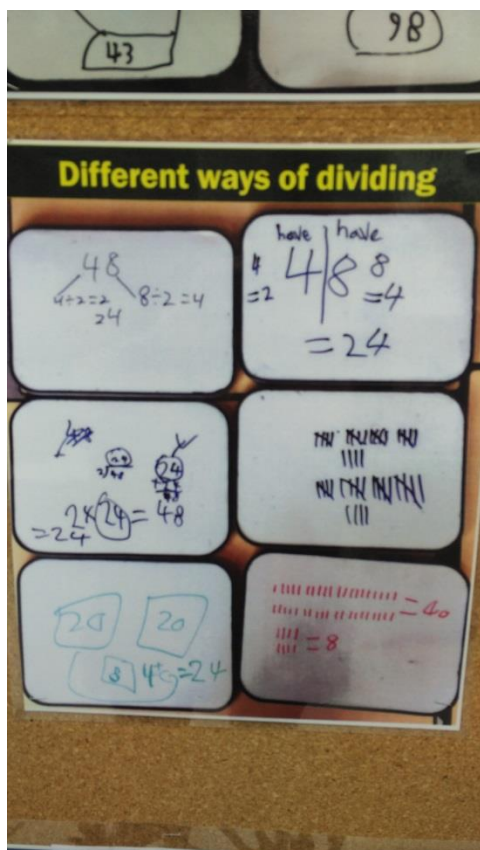 43
98
Different ways of dividing
48
4÷2=2 8÷2=4
24
have have
4 4 8 8
=2 =4
=24
24
2 48
24
2×24=48
=24
20 20
8 4 =24
=40
=8